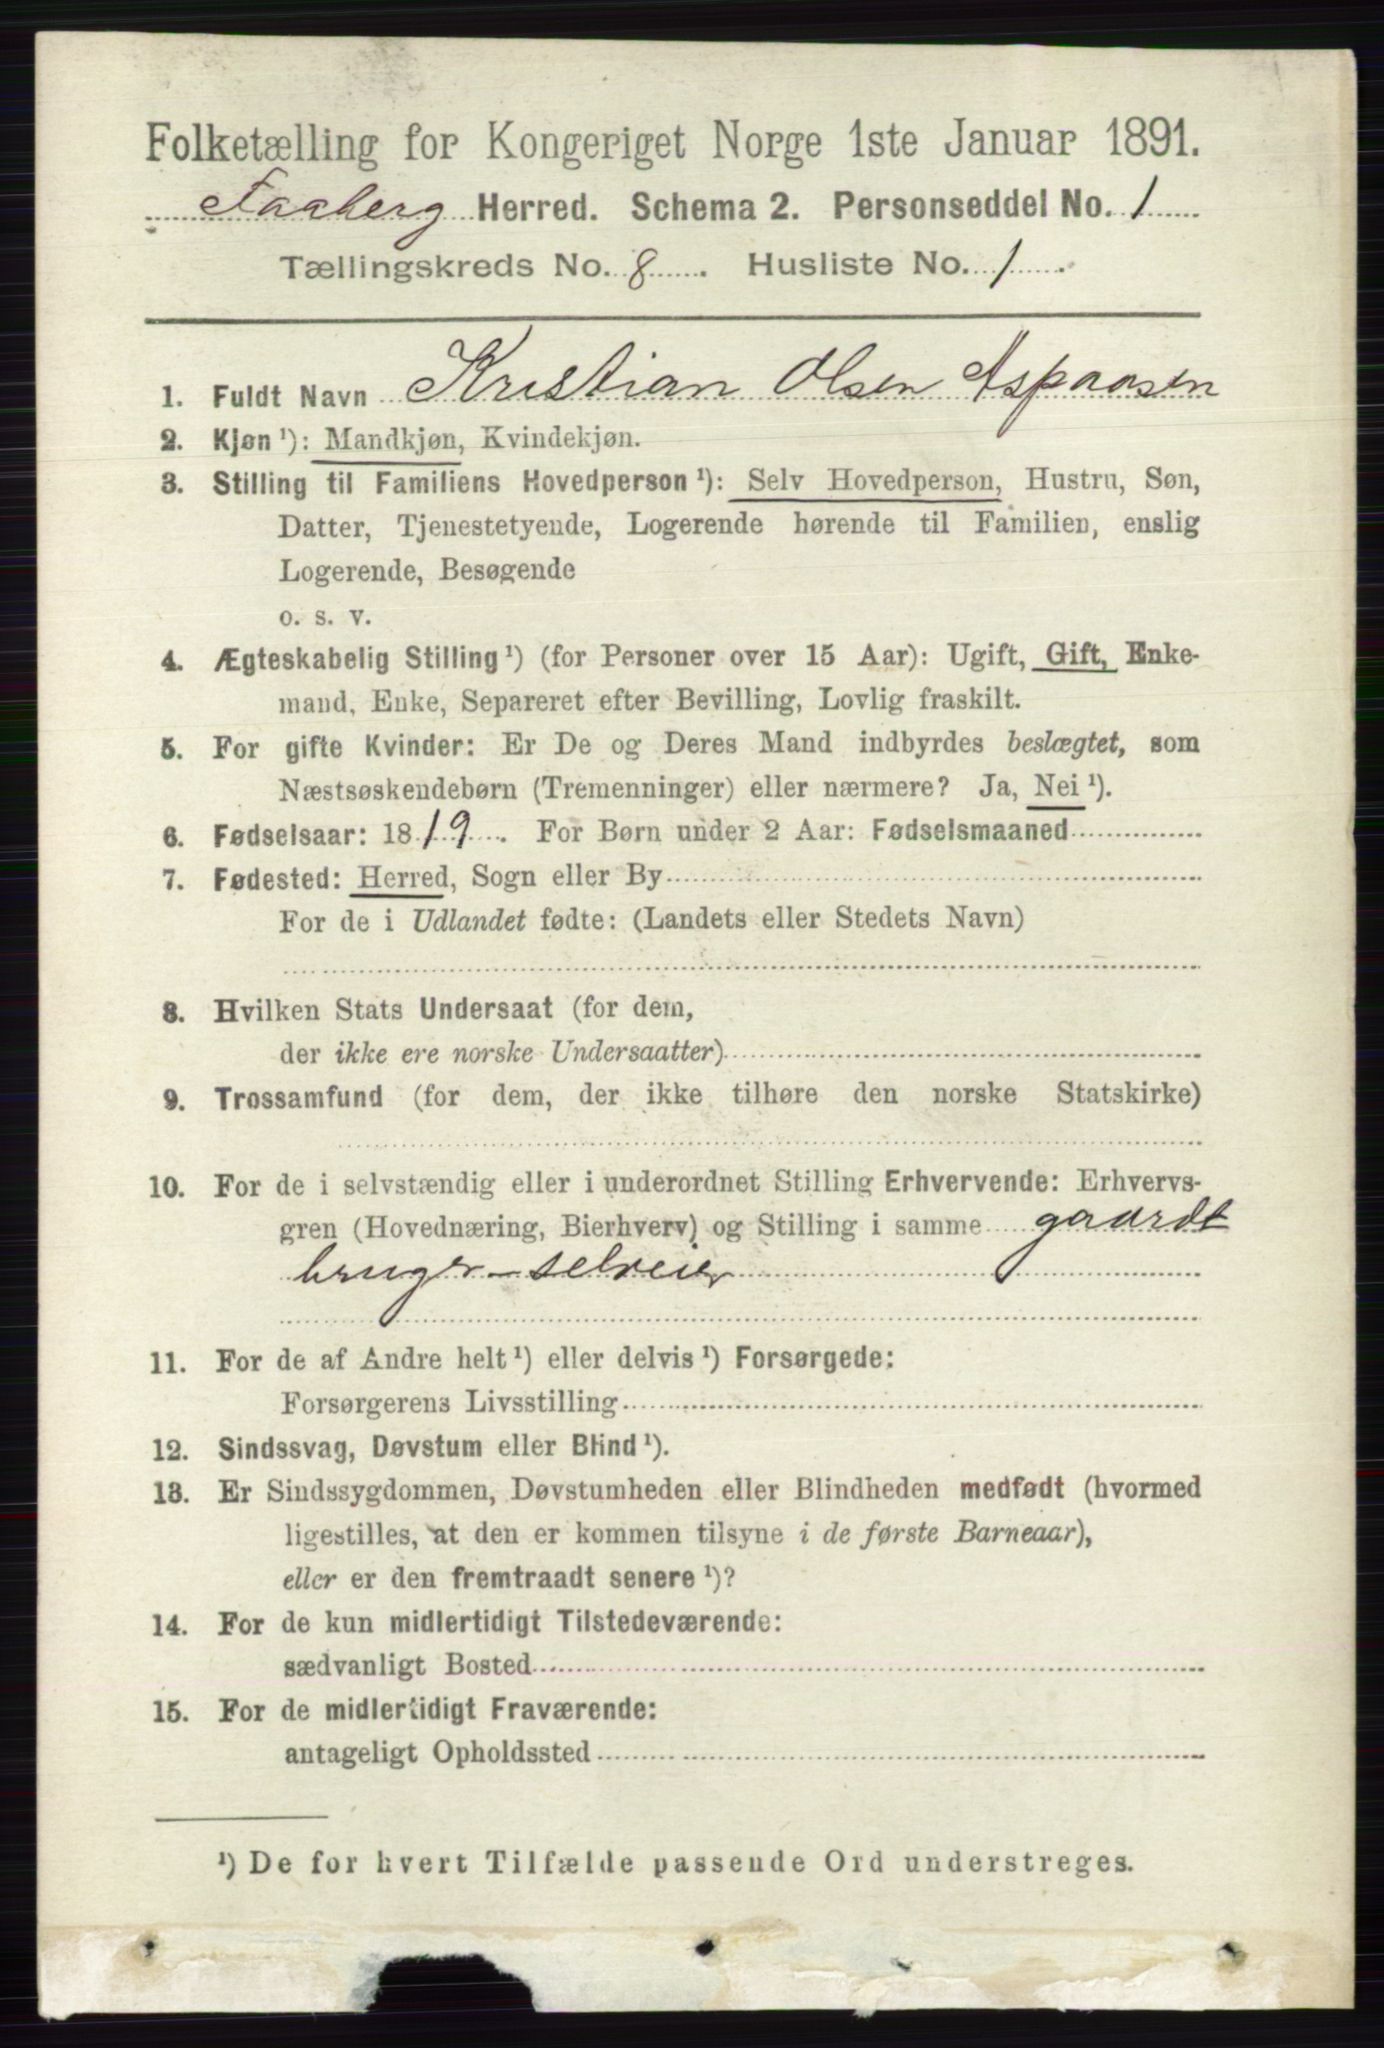 Folketælling for Kongeriget Norge 1ste Januar 1891.
Faaberg Herred. Schema 2. Personseddel No. 1
Tællingskreds No. 8. Husliste No. 1.
1. Fuldt Navn Kristian Olsen Aspaasen
2. Kjøn ¹): Mandkjøn, Kvindekjøn.
3. Stilling til Familiens Hovedperson ¹): Selv Hovedperson, Hustru, Søn,
Datter, Tjenestetyende, Logerende hørende til Familien, enslig
Logerende, Besøgende
o. s. v.
4. Ægteskabelig Stilling ¹) (for Personer over 15 Aar): Ugift, Gift, Enke-
mand, Enke, Separeret efter Bevilling, Lovlig fraskilt.
5. For gifte Kvinder: Er De og Deres Mand indbyrdes beslægtet, som
Næstsøskendebørn (Tremenninger) eller nærmere? Ja, Nei ¹).
6. Fødselsaar: 1819. For Børn under 2 Aar: Fødselsmaaned
7. Fødested: Herred, Sogn eller By
For de i Udlandet fødte: (Landets eller Stedets Navn)
8. Hvilken Stats Undersaat (for dem,
der ikke ere norske Undersaatter)
9. Trossamfund (for dem, der ikke tilhøre den norske Statskirke)
10. For de i selvstændig eller i underordnet Stilling Erhvervende: Erhvervs-
gren (Hovednæring, Bierhverv) og Stilling i samme gaards
bruger - selveier
11. For de af Andre helt ¹) eller delvis ¹) Forsørgede:
Forsørgerens Livsstilling
12. Sindssvag, Døvstum eller Blind ¹).
13. Er Sindssygdommen, Døvstumheden eller Blindheden medfødt (hvormed
ligestilles, at den er kommen tilsyne i de første Barneaar),
eller er den fremtraadt senere ¹)?
14. For de kun midlertidigt Tilstedeværende:
sædvanligt Bosted
15. For de midlertidigt Fraværende:
antageligt Opholdssted
¹) De for hvert Tilfælde passende Ord understreges.